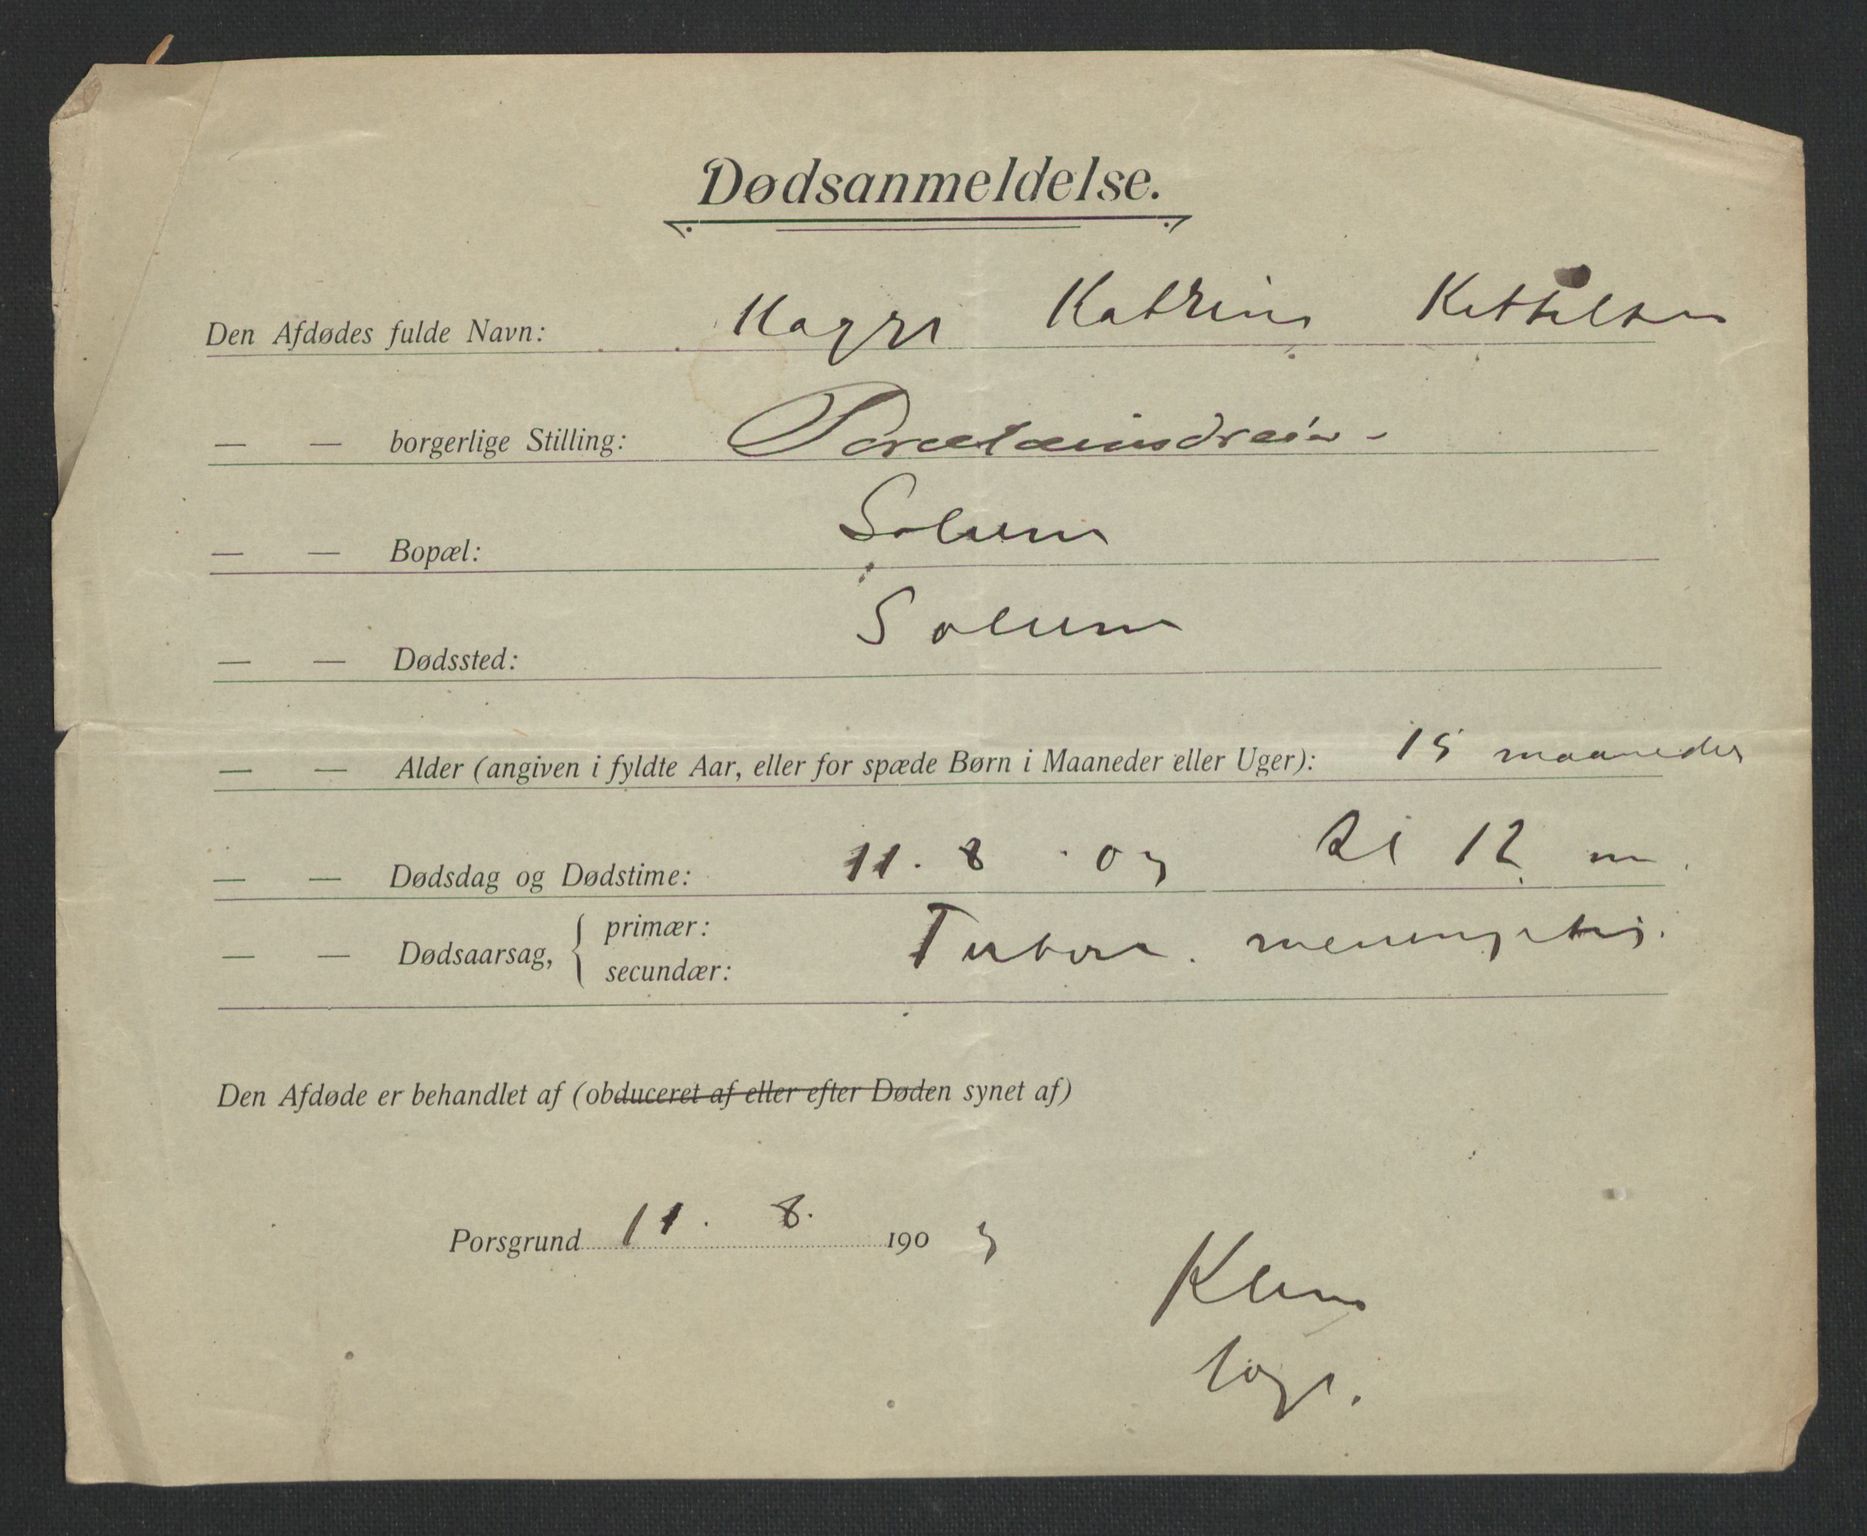 Dødsanmeldelse.
Den Afdødes fulde Navn: Katrine Kittelsen
— — borgerlige Stilling: Porcelainsdreier
— — Bopæl: Solum
— — Dødssted: Solum
— — Alder (angiven i fyldte Aar, eller for spæde Børn i Maaneder eller Uger): 15 maaneder
— — Dødsdag og Dødstime: 11. 8 · 0 kl 12 m.
— — Dødsaarsag, { primær: Tuberc. meningitis.
secundær:
Den Afdøde er behandlet af (obduceret af eller efter Døden synet af)
Porsgrund 11. 8. 190
læge.